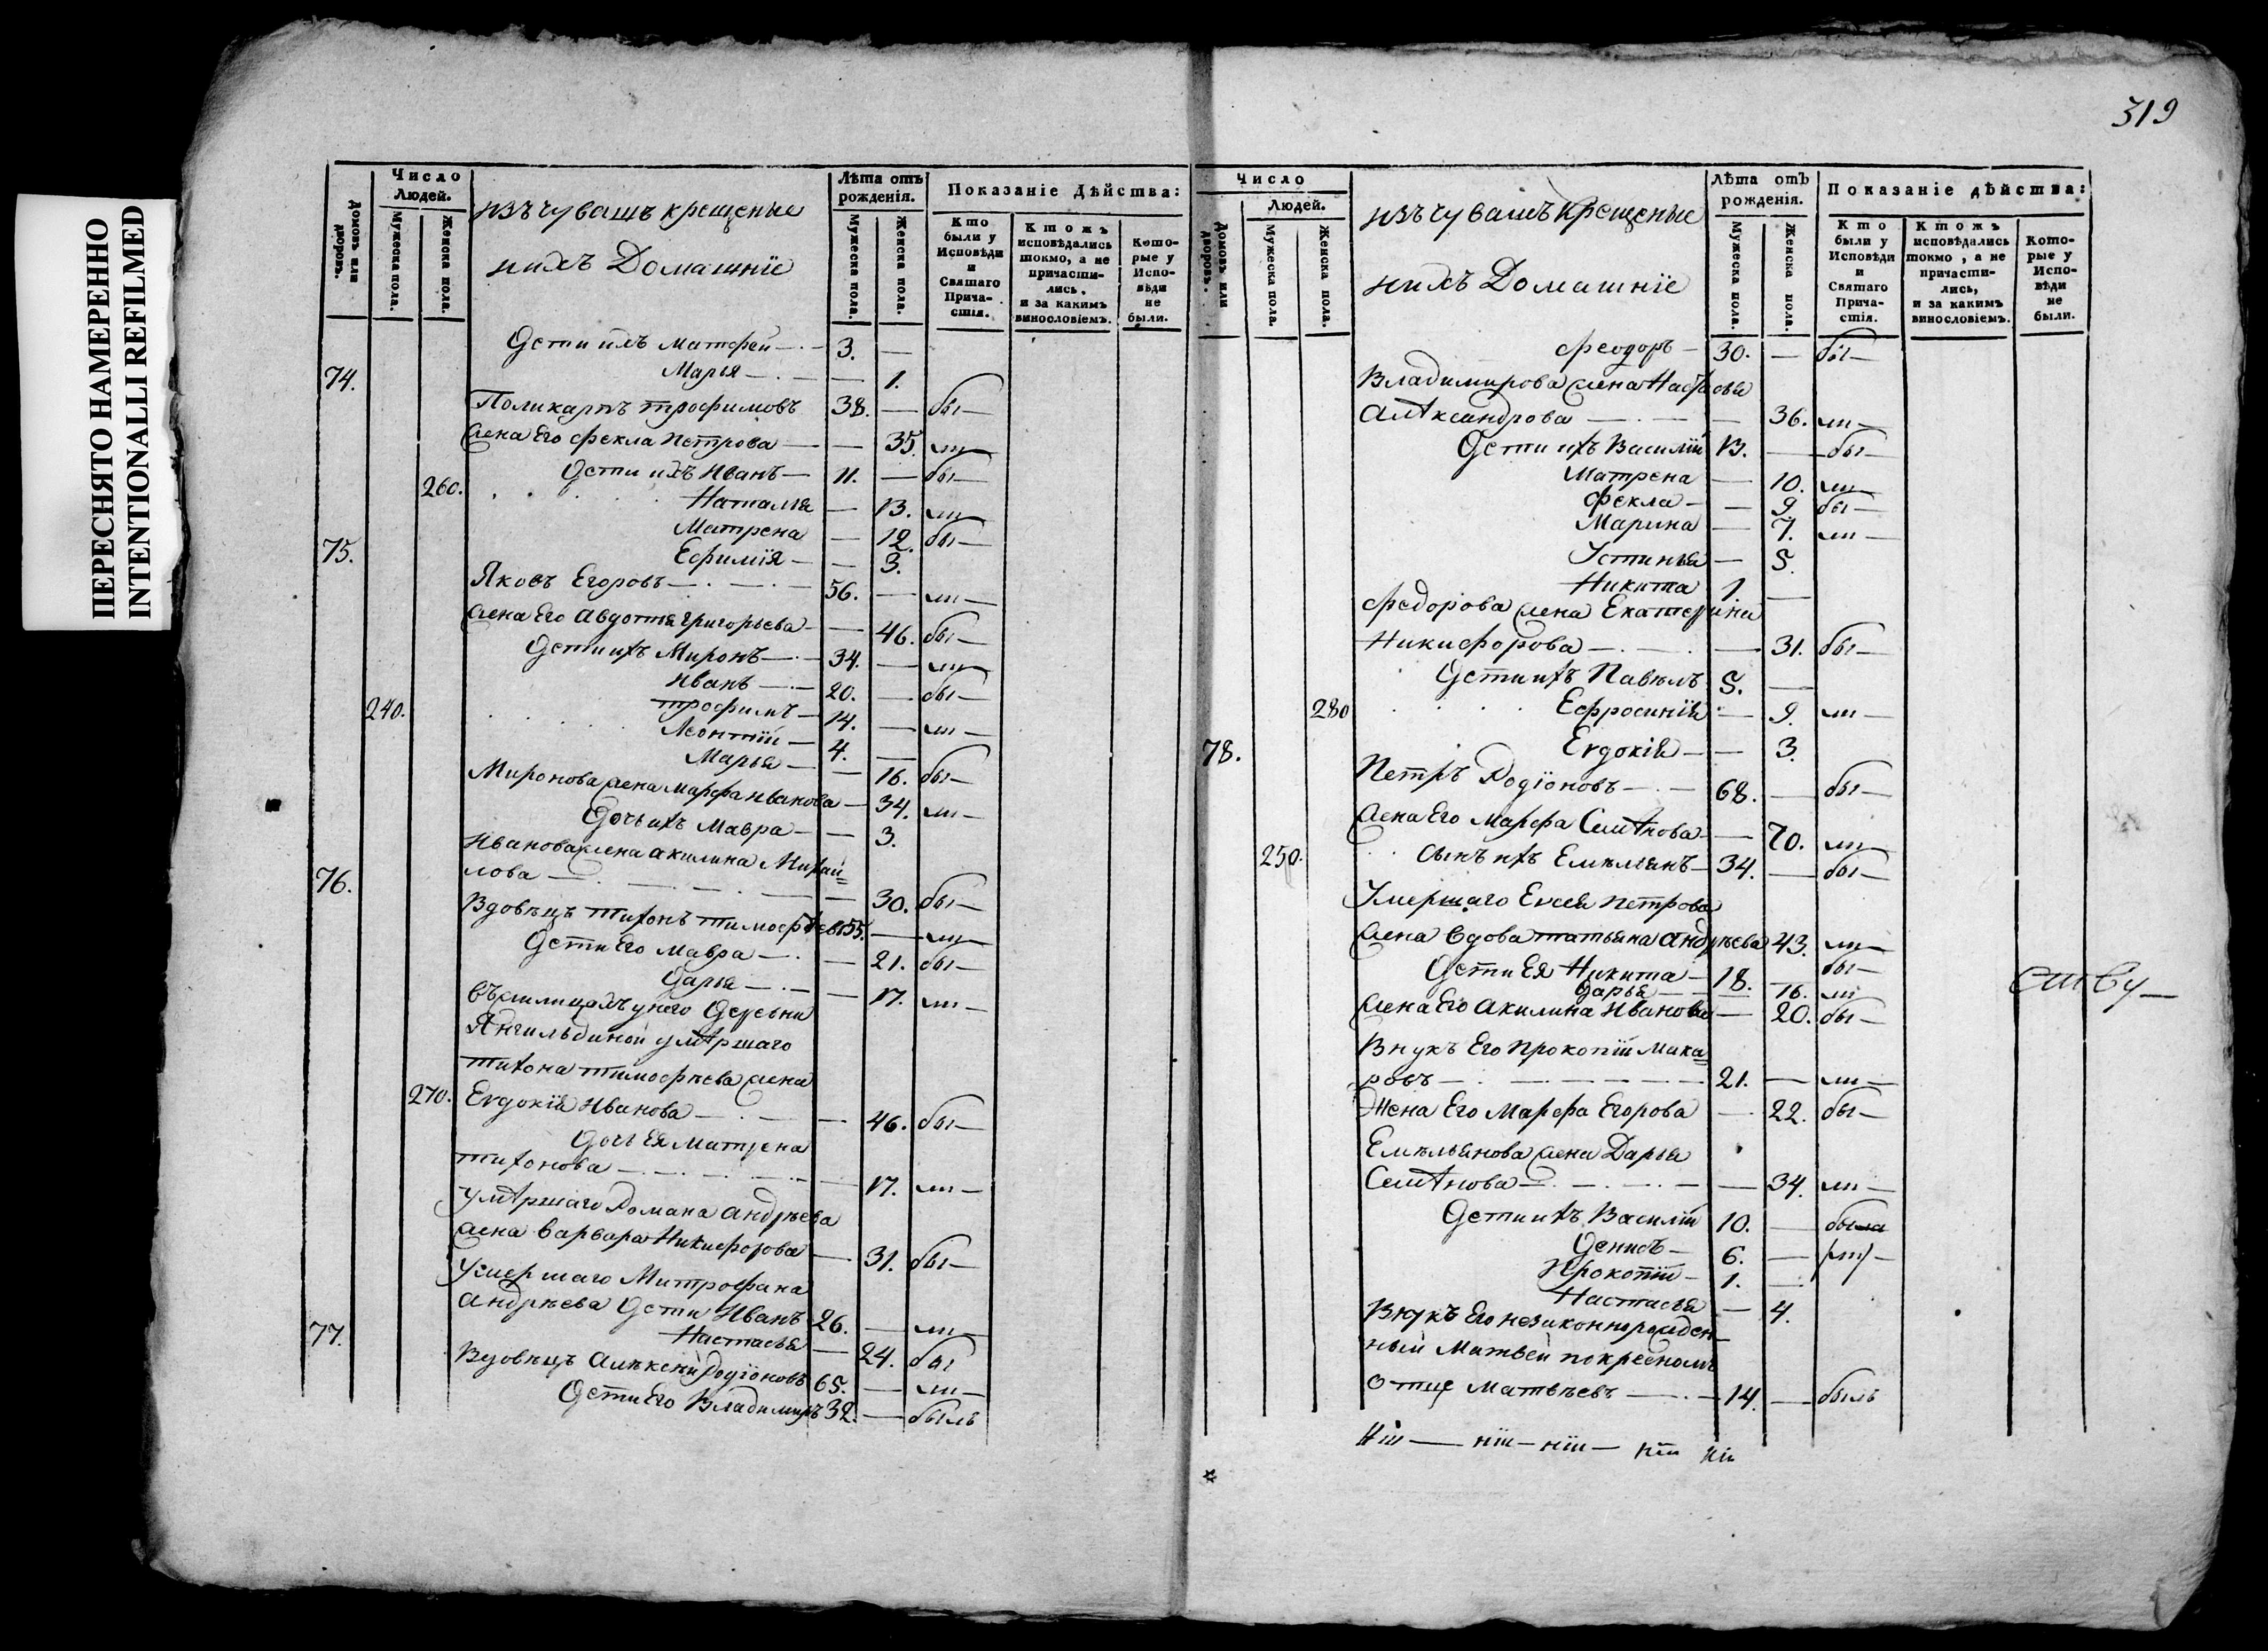 ПЕРЕСНЯТО НАМЕРЕННО
INTENTIONALLI REFILMED
319
Домовъ или дворовъ.
Число Людей.
Мужеска пола.
Женска пола.
изъ чувашъ крещеные
нихъ Домашніе
Лѣта отъ рожденія.
Мужеска пола.
Женска пола.
Показаніе Дѣйства:
Кто были у Исповѣди и Святаго Прича-стія.
Ктожъ исповѣдались токмо, а не причасти-лись, и за какимъ винословіемъ.
Кото-рые у Испо-вѣди не были.
Дети ихъ Матфей — 3. —
Марья — — 1.
74.
Поликарпъ трофимовъ 38. — бы—
жена Его фекла Петрова — — 35. ли—
Дети ихъ Иванъ — 11. — бы—
260. Наталья — 13. ли—
Матрена — 12. бы—
Ефимія — — 3.
75.
Яковъ Егоровъ — 56. — ли—
жена Его Авдотья григорьева — — 46. бы—
Дети ихъ Миронъ — 34. — ли—
Иванъ — 20. — бы—
240. трофимъ — 14. — ли—
Леонтій — 4. —
Марья — — 16. бы—
Миронова жена марфа иванова — 34. ли—
Дочь ихъ Мавра — — 3.
Иванова жена акилина Михай=
лова — — 30. бы—
76.
Вдовецъ тихонъ тимофѣевъ 55. — ли—
Дети Его Мавра — — 21. бы—
Дарья — — 17. ли—
въ жилищахъ у него Деревни
Янгильдиной умѣршаго
тихона тимофѣева жена
270. Евдокія Иванова — — 46. бы—
Дочь Ея Матрена
тихонова — — 17. ли—
умѣршаго Романа андрѣева
жена варвара Никифорова — 31. бы—
умершаго Митрофана
андрѣева Дети Иванъ 26. — ли—
Настасья — 24. бы
77.
Вдовецъ Алексѣй родіоновъ 65. — ли—
Дети Его Владимиръ 32. — былъ
Домовъ или дворовъ.
Число Людей.
Мужеска пола.
Женска пола.
изъ чувашъ крещеные
нихъ Домашніе
Лѣта отъ рожденія.
Мужеска пола.
Женска пола.
Показаніе дѣйства:
Кто были у Исповѣди и Святаго Прича-стія.
Ктожъ исповѣдались токмо, а не причасти-лись, и за какимъ винословіемъ.
Кото-рые у Испо-вѣди не были.
феодоръ — 30. — бы—
Владимирова жена Настасья
алѣксандрова — — 36. ли—
Дети ихъ Василій 13. — бы—
Матрена — 10. ли—
фекла — — 9 бы—
Марина — 7. ли—
Устинья — 5.
Никита 1. —
федорова жена Екатерина
Никифорова — — 31. бы—
Дети ихъ Павелъ 5. —
280 Ефросинія — 9. ли—
Евдокія — — 3.
78.
Петръ Родіоновъ — 68. — бы—
жена Его Марфа Семѣнова — 70. ли—
250. сынъ ихъ Емельянъ — 34. — бы—
Умершаго Евсея петрова
жена вдова татьяна андрѣева 43. ли—
Дети Ея Никита — 18. — бы—
Дарья — — 16. ли
жена Его акилина Иванова — 20. бы—
Внукъ Его прокопій Мака=
ровъ — 21. — ли—
Жена Его Марфа Егорова — 22. бы—
Емельянова жена Дарья
Семѣнова — — 34. ли—
Дети ихъ Василій 10. — была
Денисъ — 6. —
Прокопій — 1. —
Настасья — 4.
Внукъ Его незаконнорожден-
ный Матвей по кресномъ
отце Матвѣевъ — 14. — былъ
ній — ній — ній — ній ній